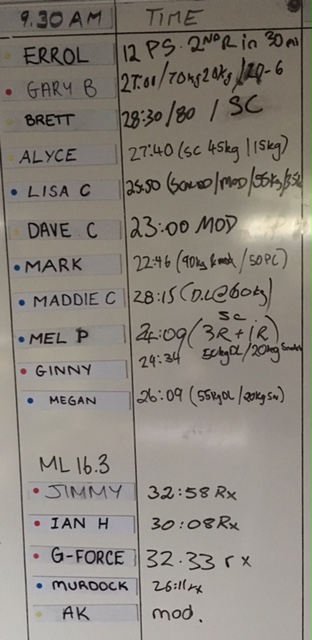 9.30 AM TIME
ERROL 12 PS. 2ND R in 30
GARY B 27:01/70kg 20kg/
BRETT 28:30/80 / SC
ALYCE 27:40 (SC 45kg/15kg)
LISA C 25:50
DAVE C 23:00 MOD
MARK 22:46 (90kg / 50PC)
MADDIE C 28:15 (D.L@60kg)
SC
MEL P 24:09 (3R + 1R)
GINNY 24:34 50kgDL/20kg
MEGAN 26:09 (55kgDL/20kgSn)
ML 16.3
JIMMY 32:58 Rx
IAN H 30:08 Rx
G-FORCE 32.33 rx
MURDOCK 26:11 rx
AK mod.